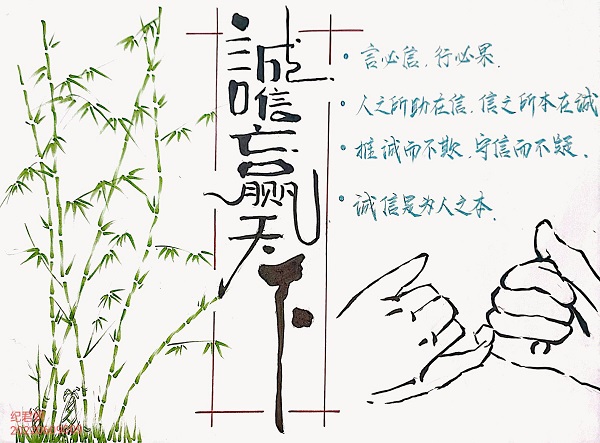 誠信赢天下
言必信,行必果.
人之所助在信,信之所本在诚
推诚而不欺,守信而不疑.
诚信是为人之本.